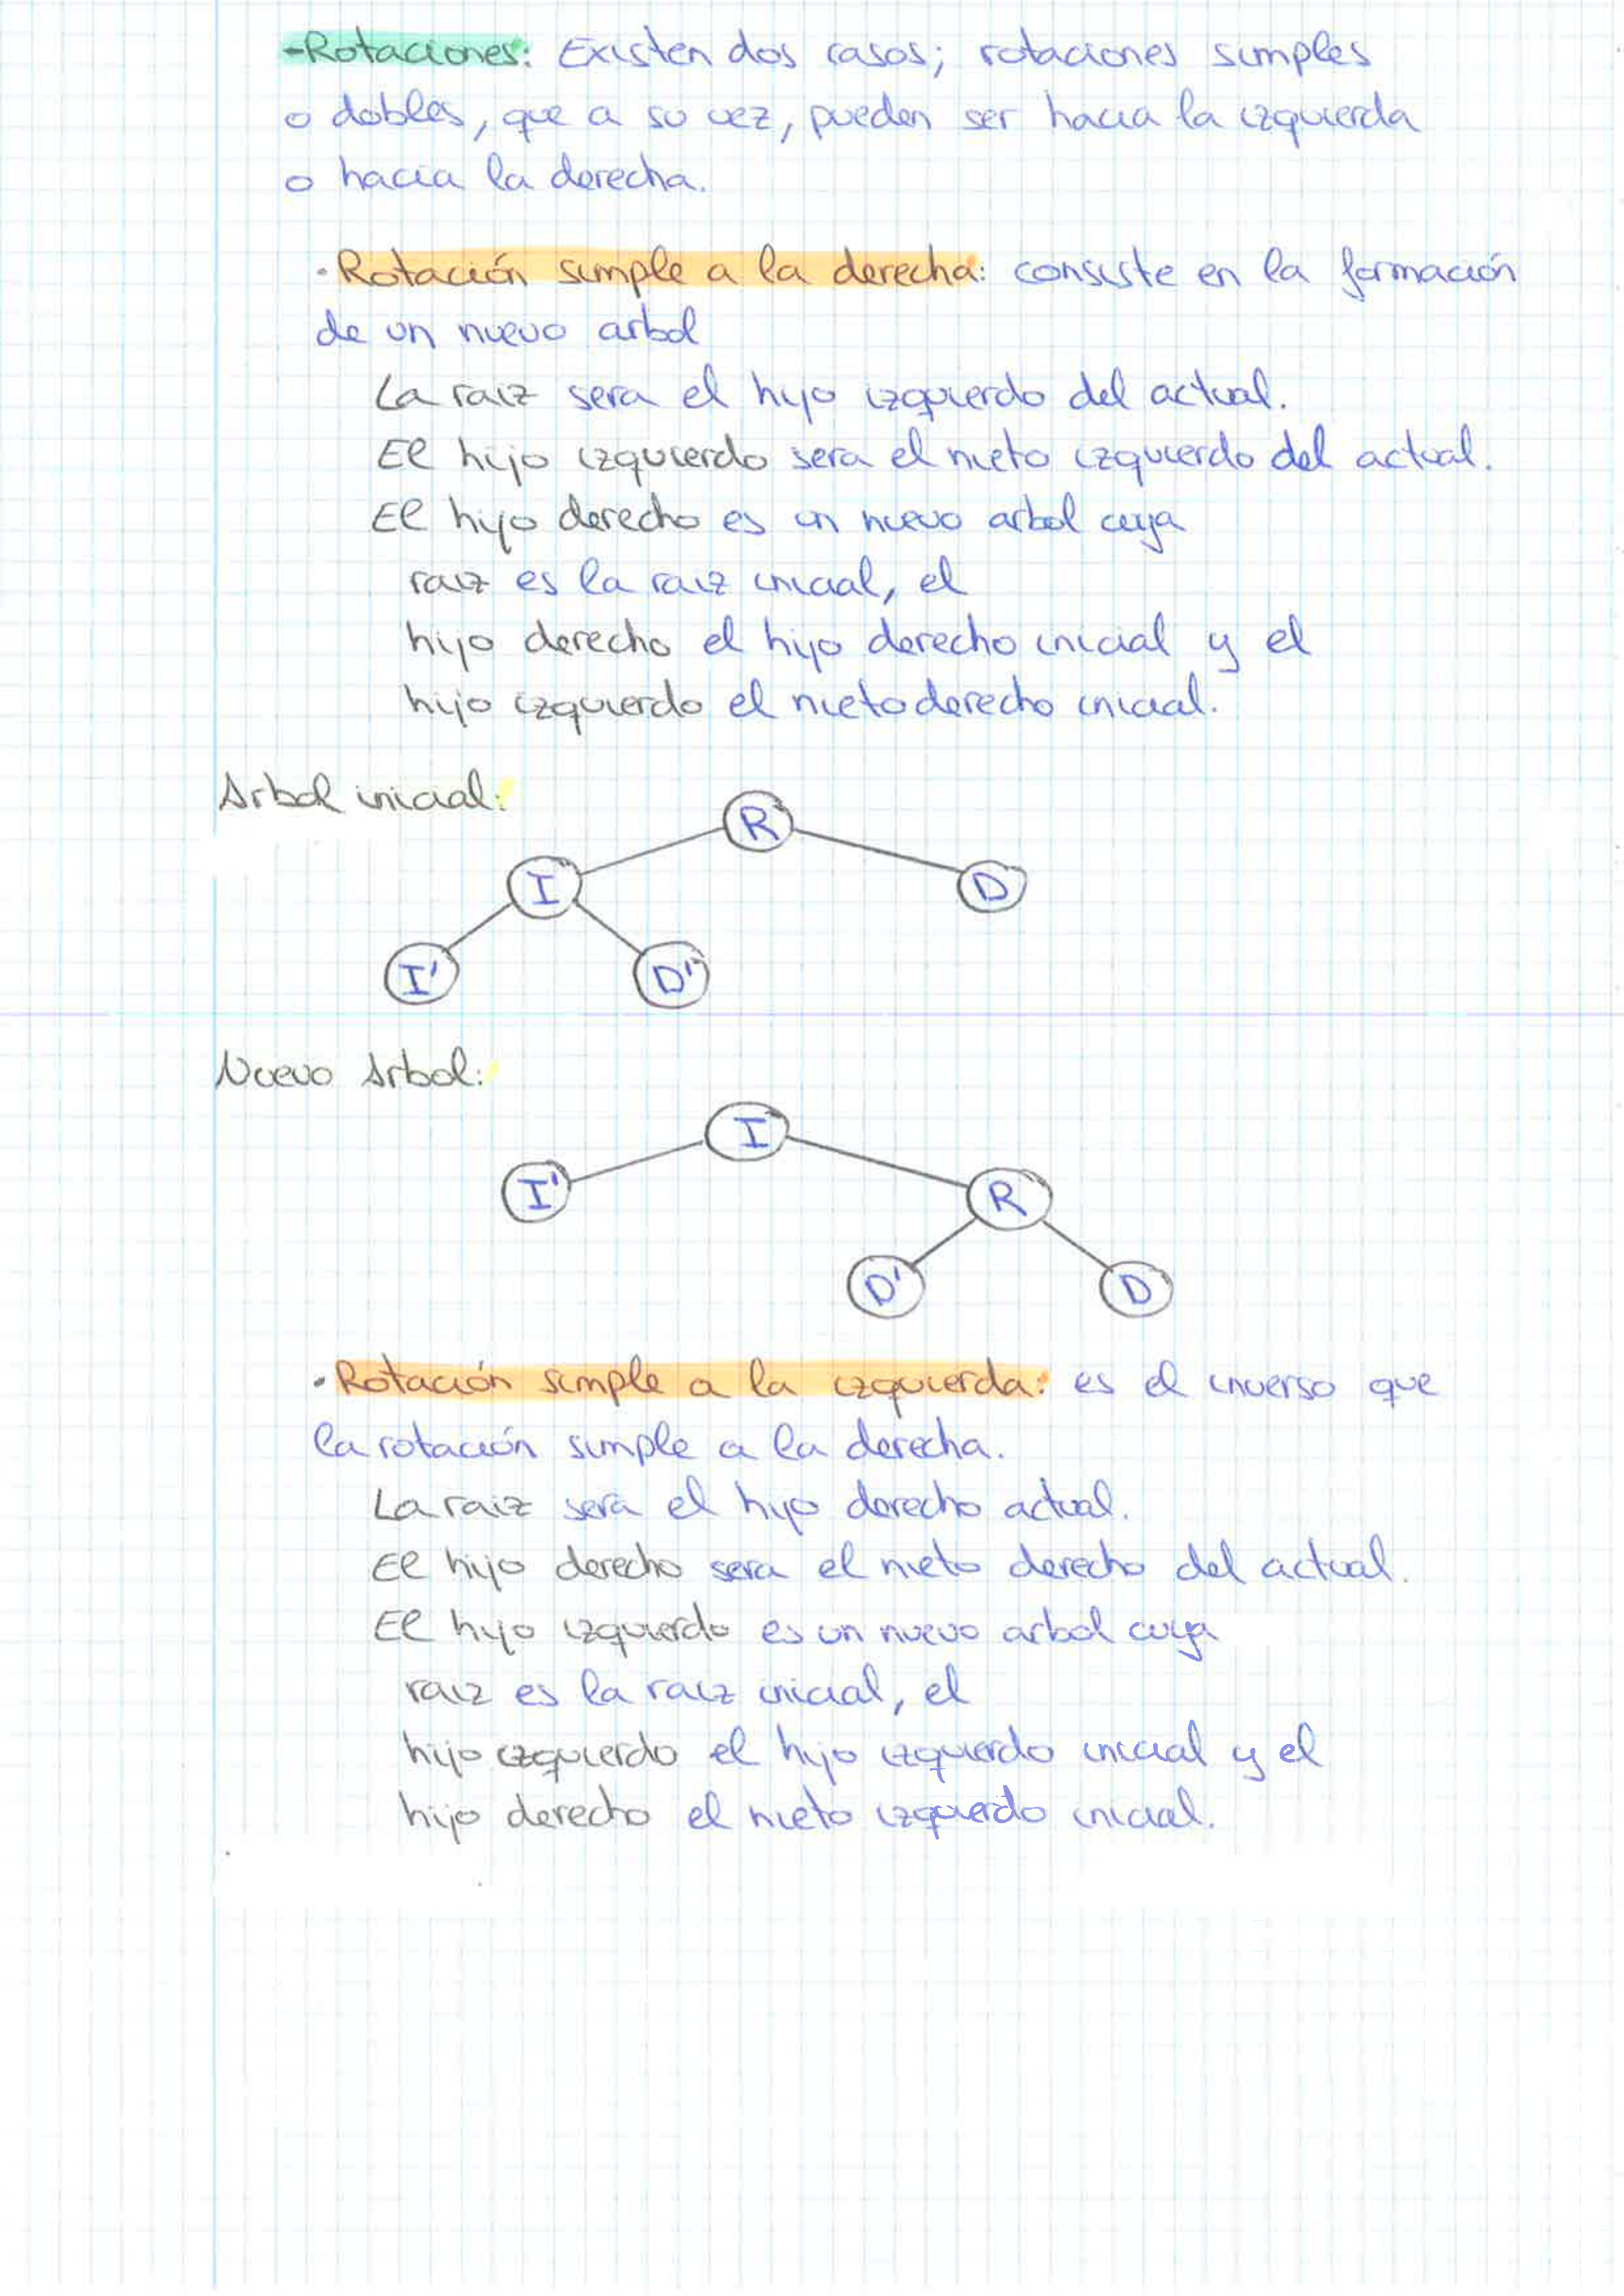 -Rotaciones: Existen dos casos; rotaciones simples
o dobles, que a su vez, pueden ser hacia la izquierda
o hacia la derecha.
·Rotación simple a la derecha: consiste en la formación
de un nuevo arbol
La raiz sera el hijo izquierdo del actual.
El hijo izquierdo sera el nieto izquierdo del actual.
El hijo derecho es un nuevo arbol cuya
raiz es la raiz inicial, el
hijo derecho el hijo derecho inicial y el
hijo izquierdo el nieto derecho inicial.
Arbol inicial:
R
I
D
I'
D'
Nuevo Arbol:
I
I'
R
D'
D
·Rotación simple a la izquierda: es el inverso que
la rotación simple a la derecha.
La raiz será el hijo derecho actual.
El hijo derecho sera el nieto derecho del actual.
El hijo izquierdo es un nuevo arbol cuya
raiz es la raiz inicial, el
hijo izquierdo el hijo izquierdo inicial y el
hijo derecho el nieto izquierdo inicial.